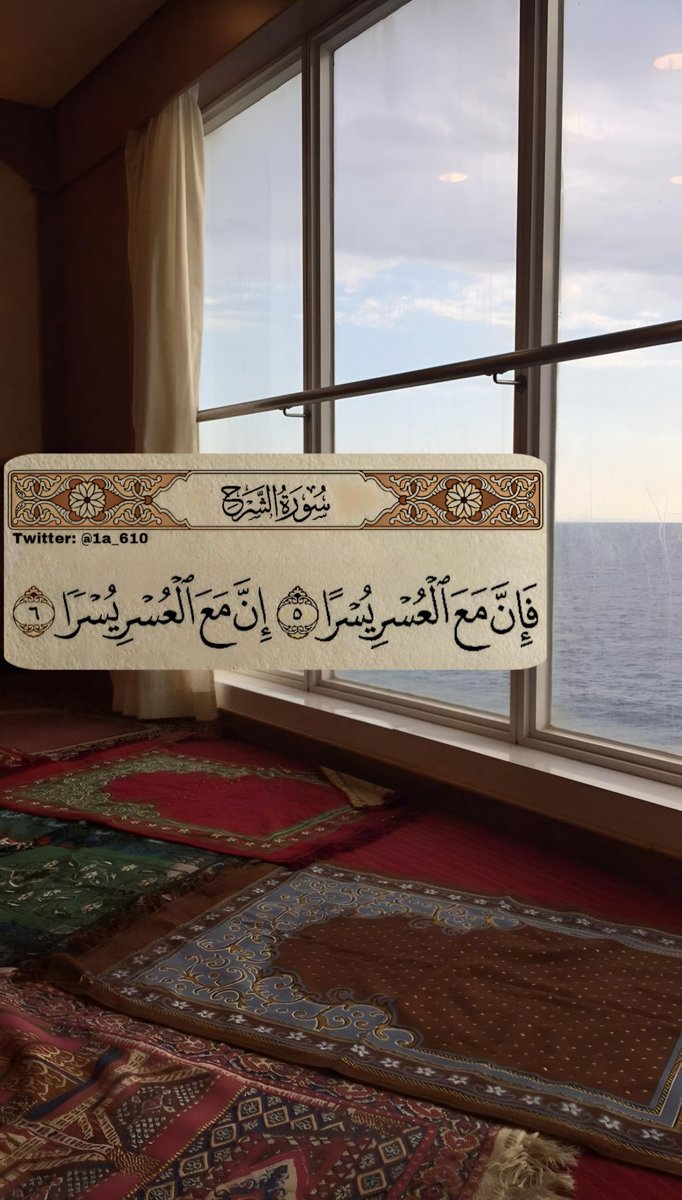 سُورَةُ الشَّرْحِ
Twitter: @1a_610
فَإِنَّ مَعَ ٱلْعُسْرِ يُسْرًا ٥ إِنَّ مَعَ ٱلْعُسْرِ يُسْرًا ٦